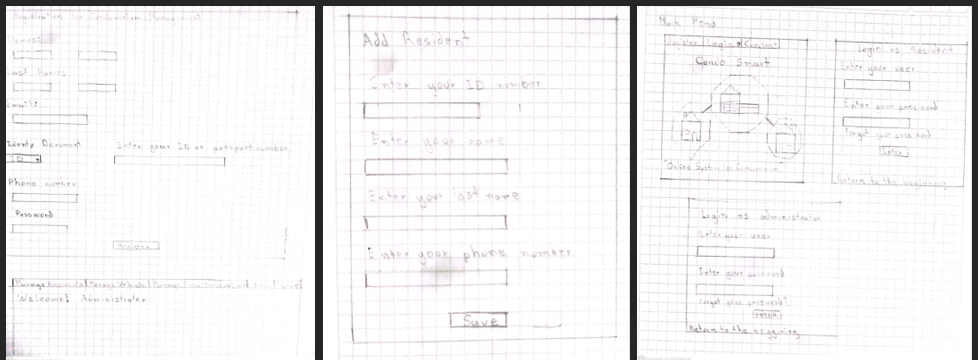 Registration for Condominium Management
Names:
Last Names
Email:
Identy Document
Enter your ID or passport number
ID
Phone number
Password
Register
Welcome! Administrator
Add Resident
Enter your ID number
Enter your name
Enter your last name
Enter your phone number
Save
Main Menu
Register Login Contact
Condo Smart
Online System for
Login as Resident
Enter your user
Enter your password
Forgot your password
Enter
Return to the beginning
Login as administrator
Enter your user
Enter your password
Forgot your password?
Return to the beginning